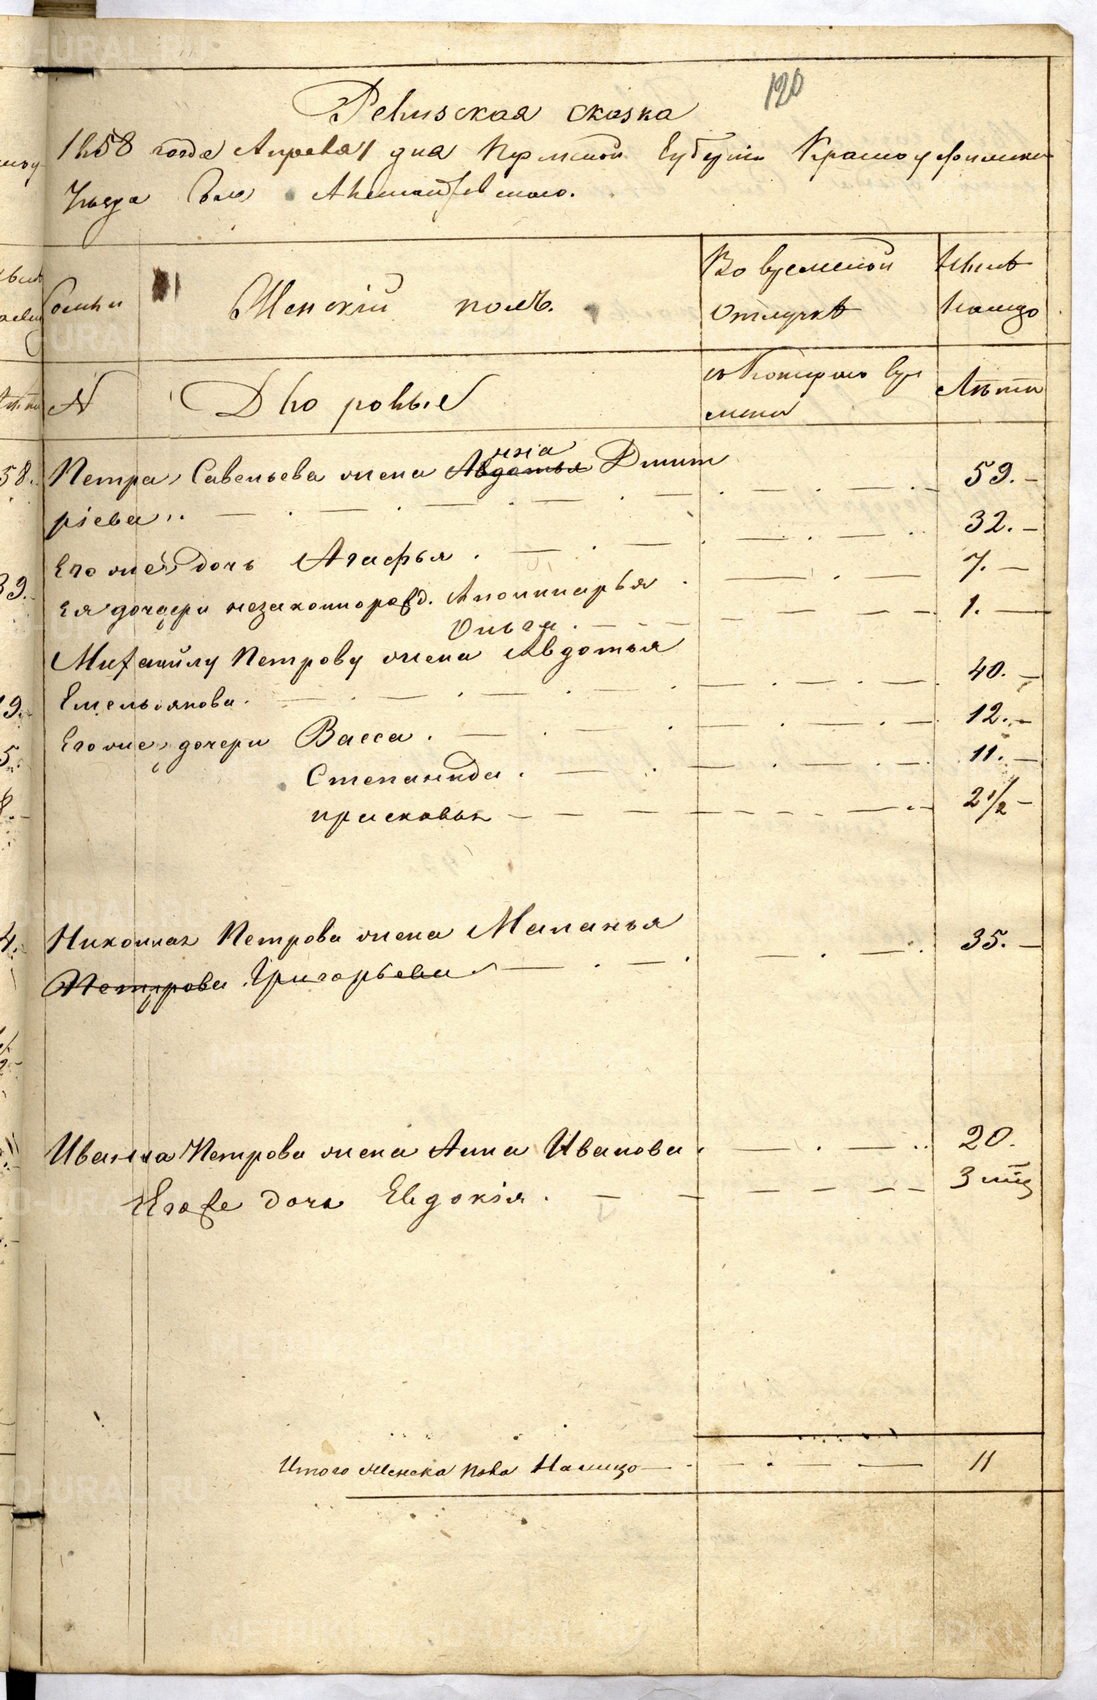 120
Ревизская сказка
1858 года Апреля 1 дня Пермской Губернии Красноуфимска
Уезда Села
Семьи
Женскій полъ.
Во временной
отлучкѣ
Нынѣ
налицо
N
Дворовые
съ Котораго вре
мени
Лѣта
Петра Савельева жена Авдотья нна Дмит
ріева. 59.
Его же дочь Агафья 32.
Ея дочери незаконнорожд. Аполинарья 7.
Ольга. 1.
Михаилу Петрову жена Авдотья
Емельянова. 40.
Его же дочери Васса. 12.
Степанида. 11.
прасковья 2 1/2
Николая Петрова жена Маланья 35.
Петрова Григорьева
Ивана Петрова жена Анна Иванова. 20.
Егоже дочь Евдокія. 3 мѣс
Итого женска пола Налицо 11